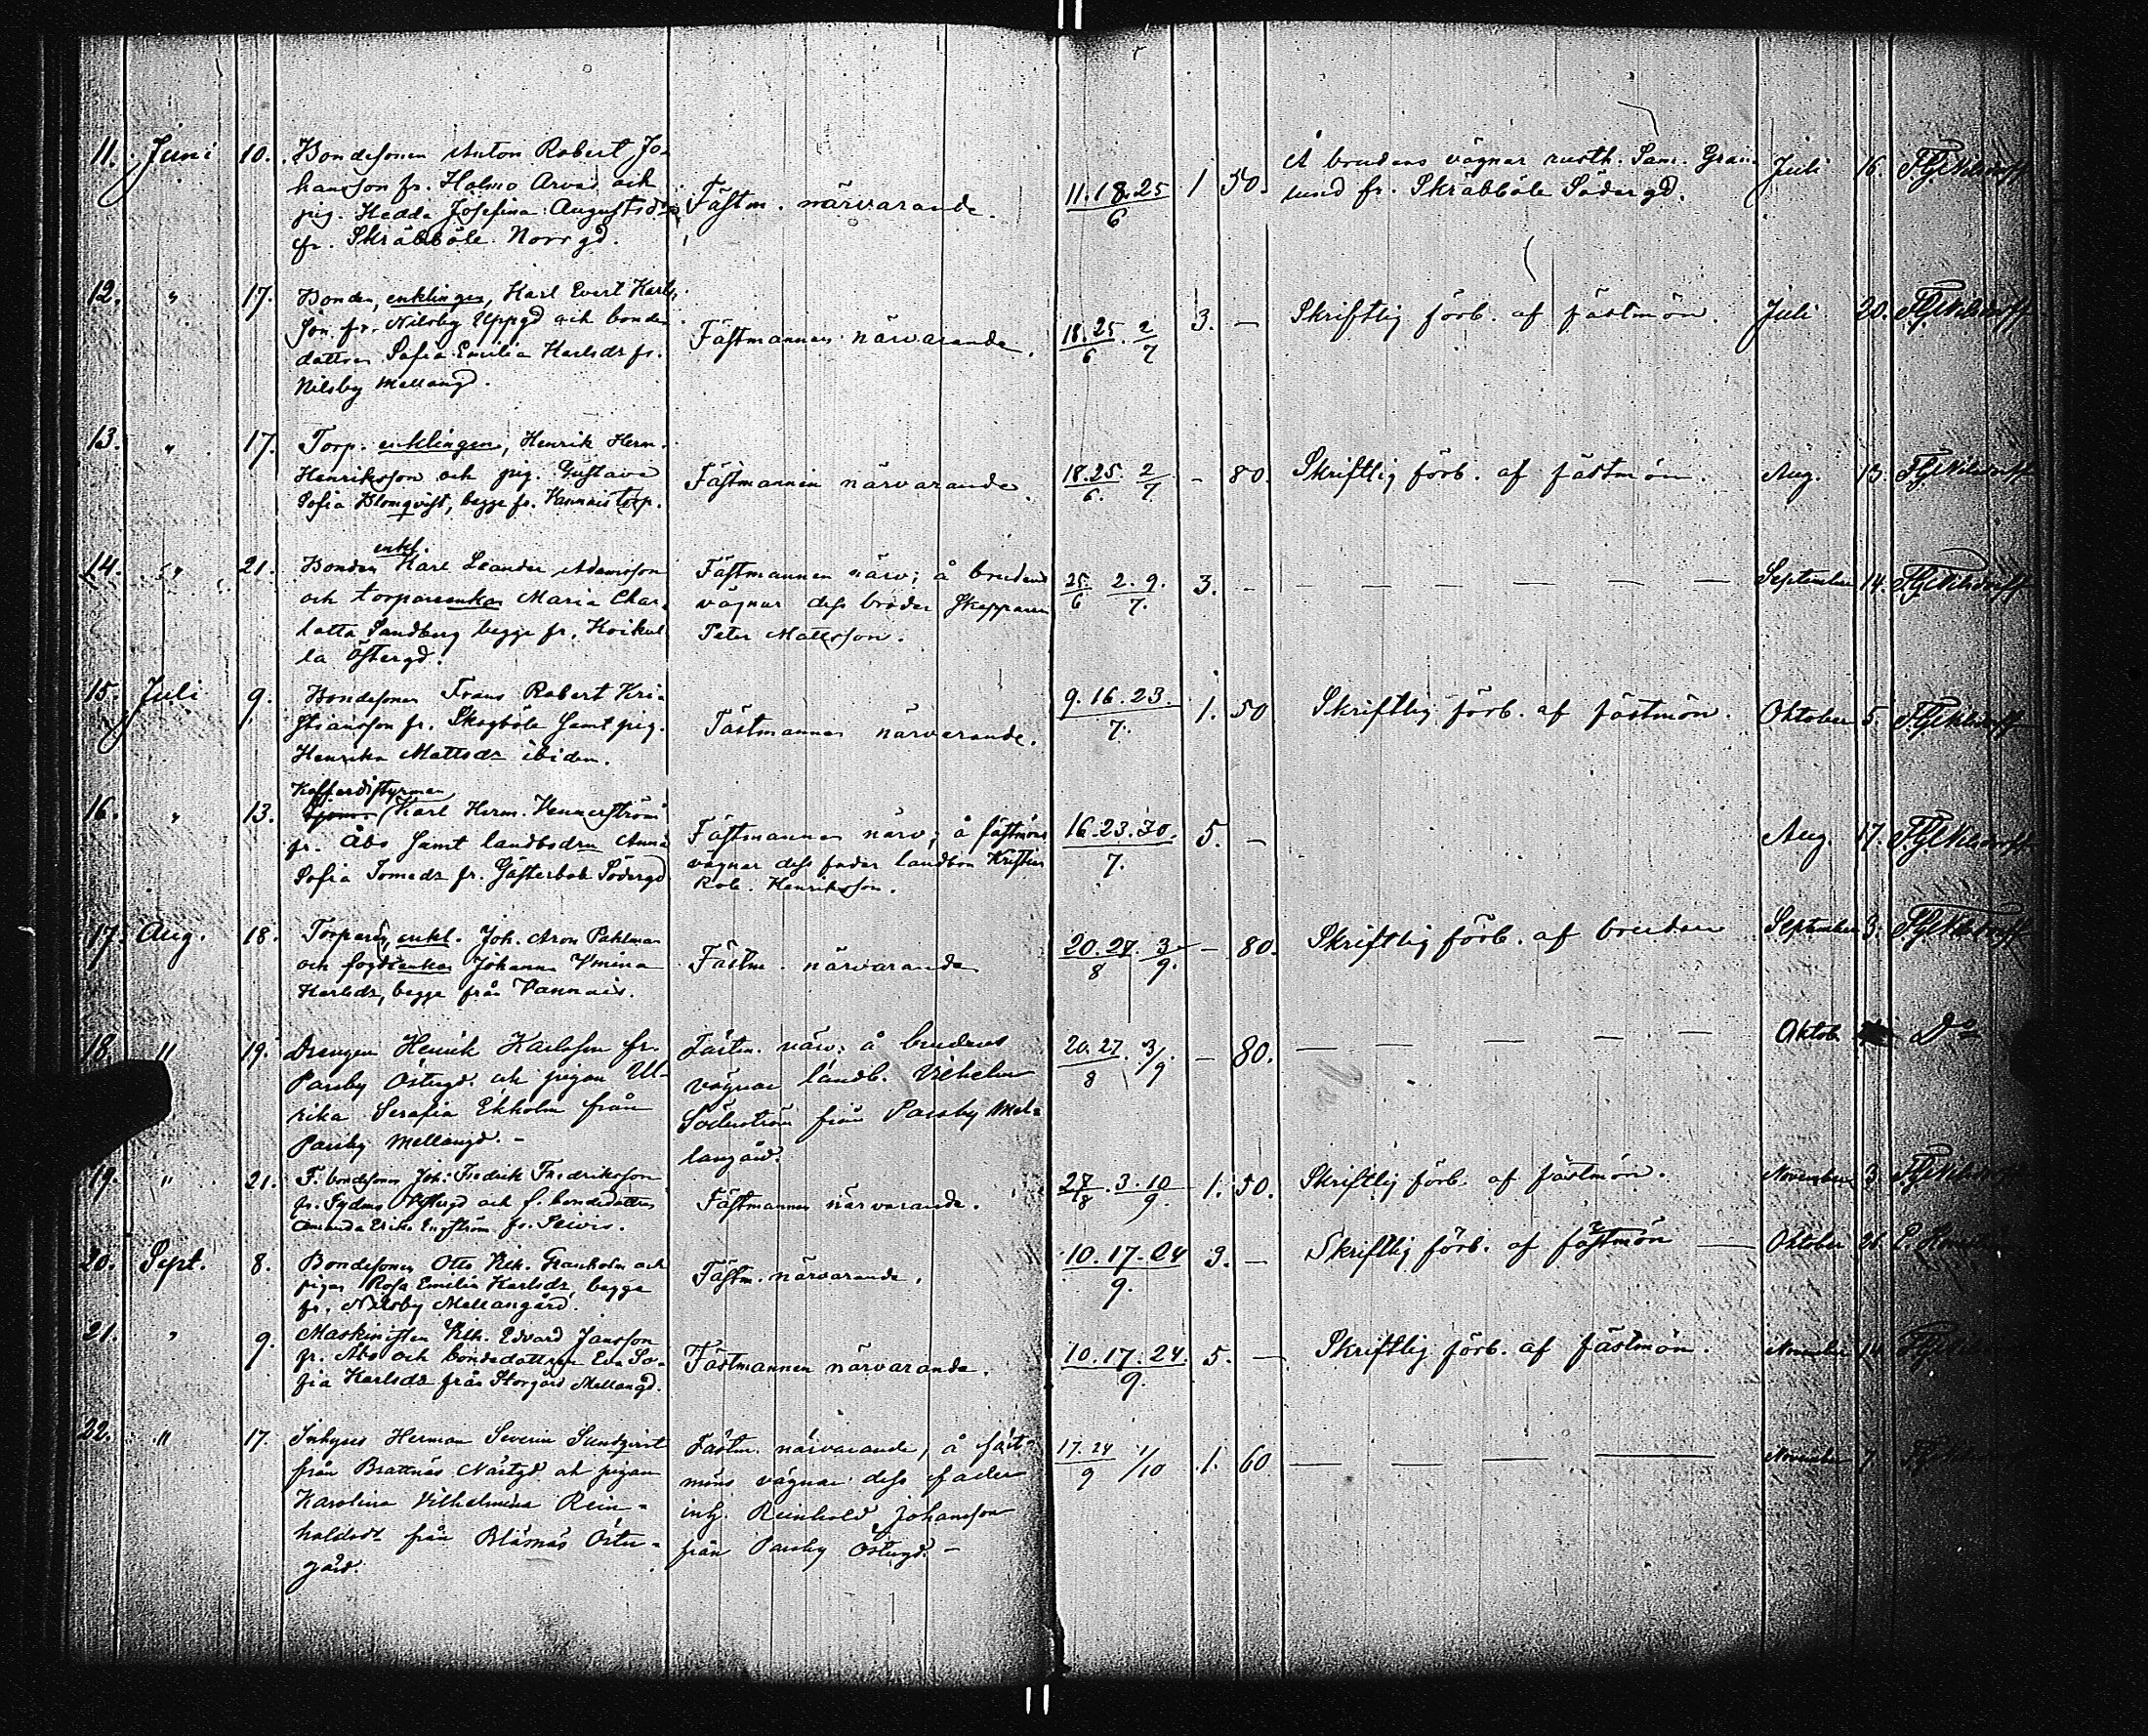 11. Juni 10. Bondesonen Anton Robert Jo-
hansson fr. Holmo Arvas och
pig. Hedda Josefina Augustsdr
fr. Skräbböle Norrgd.
Fästm. närvarande.
11.18.25
6
1 50.
Å brudens vägnar rusth. Sam. Gran-
lund fr. Skräbböle Södergd.
Juli 16.
12. " 17. Bonden, enklingen, Karl Evert Karls-
son fr. Nilsby Uppgd och bonde-
dottren Sofia Emilia Karlsdr fr.
Nilsby Mellangd.
Fästmannen närvarande.
18.25. 2
6 7
3. —
Skriftlig förb. af fästmön.
Juli 20.
13. " 17. Torp. enklingen, Henrik Herm.
Henriksson och pig. Gustava
Sofia Blomqvist, begge fr. Vannais torp.
Fästmannen närvarande.
18.25. 2
6. 7
- 80.
Skriftlig förb. af fästmön.
Aug. 13.
enkl.
14. " 21. Bonden Karl Leander Adamsson
och torpareenkan Maria Char-
lotta Sandberg begge fr. Koikul-
la Östergd.
Fästmannen närv; å brudens
vägnar dess broder Skepparen
Peter Mattsson.
25. 2. 9.
6 7.
3. -
— — — — — — —
September 14.
15. Juli 9. Bondesonen Frans Robert Kri-
stiansson fr. Skogböle samt pig.
Henrika Mattsdr ibidem.
Fästmannen närvarande.
9.16.23.
7.
1. 50
Skriftlig förb. af fästmön.
Oktober 5.
Kofferdistyrman
16. " 13. Karl Herm. Vennerström
fr. Åbo samt landbodrn Anna
Sofia Tomsdr fr. Gästerbok Södergd
Fästmannen närv; å fästmöns
vägnar dess fader landbon Kristian
Rob. Henriksson.
16.23.30.
7.
5. —
Aug. 17.
17. Aug. 18. Torparen, enkl. Joh. Aron Pahlman
och fogdeenkan Johanna Vmina
Karlsdr, begge från Vannais.
Fästm. närvarande
20.27. 3
8 9.
- 80.
Skriftlig förb. af bruden
September 3.
18. " 19. Drengen Henrik Karlsson fr.
Parsby Östergd. och pigan Ul-
rika Serafia Ekholm från
Parsby Mellangd. -
Fästm. närv: å brudens
vägnar landb. Vilhelm
Söderström från Parsby Mel-
langård.
20.27. 3/9.
8
- 80.
— — — — —
Oktob. Do
19. " 21. F. bondesonen Joh. Fredrik Fredriksson
fr. Sydmo Westergd och f. bondedottren
Amanda Erika Engström fr. Peivis.
Fästmannen närvarande.
27. 3. 10
8 9
1. 50.
Skriftlig förb. af fästmön.
November 3
20. Sept. 8. Bondesonen Otto Vilh. Granholm och
pigan Rosa Emilia Karlsdr, begge
fr. Nilsby Mellangård.
Fästm. närvarande.
10.17.24
9.
3. —
Skriftlig förb. af fästmön
Oktober 26.
21. " 9. Maskinisten Vilh. Edvard Jansson
fr. Åbo och bondedottren Eva So-
fia Karlsdr från Storgård Mellangd.
Fästmannen närvarande.
10.17.24
9.
5. —
Skriftlig förb. af fästmön.
November 14
22. " 17. Inhyses Herman Severin Sundqvist
från Brattnäs Nästgd och pigan
Karolina Vilhelmina Rein-
holdsdr från Bläsnäs Öster-
gård.
Fästm. närvarande, å fäst-
möns vägnar dess fader
inh. Reinhold Johansson
från Parsby Östergd. -
17.24 1/10
9
1. 60
— — — — —
November 7